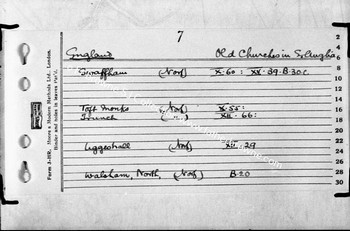 7
England Old Churches in
Swaffham (Norf) X.60: XV.39.B.30c.
Toft Monks (Norf) X.55:
Trunch ( " ) XII.66:
(Norf) XII.29
Walsham, North, (Norf) B.20
Form 3-HR. Moore's Modern Methods Ltd., London.
2
4
6
8
10
12
14
16
18
20
22
24
26
28
30